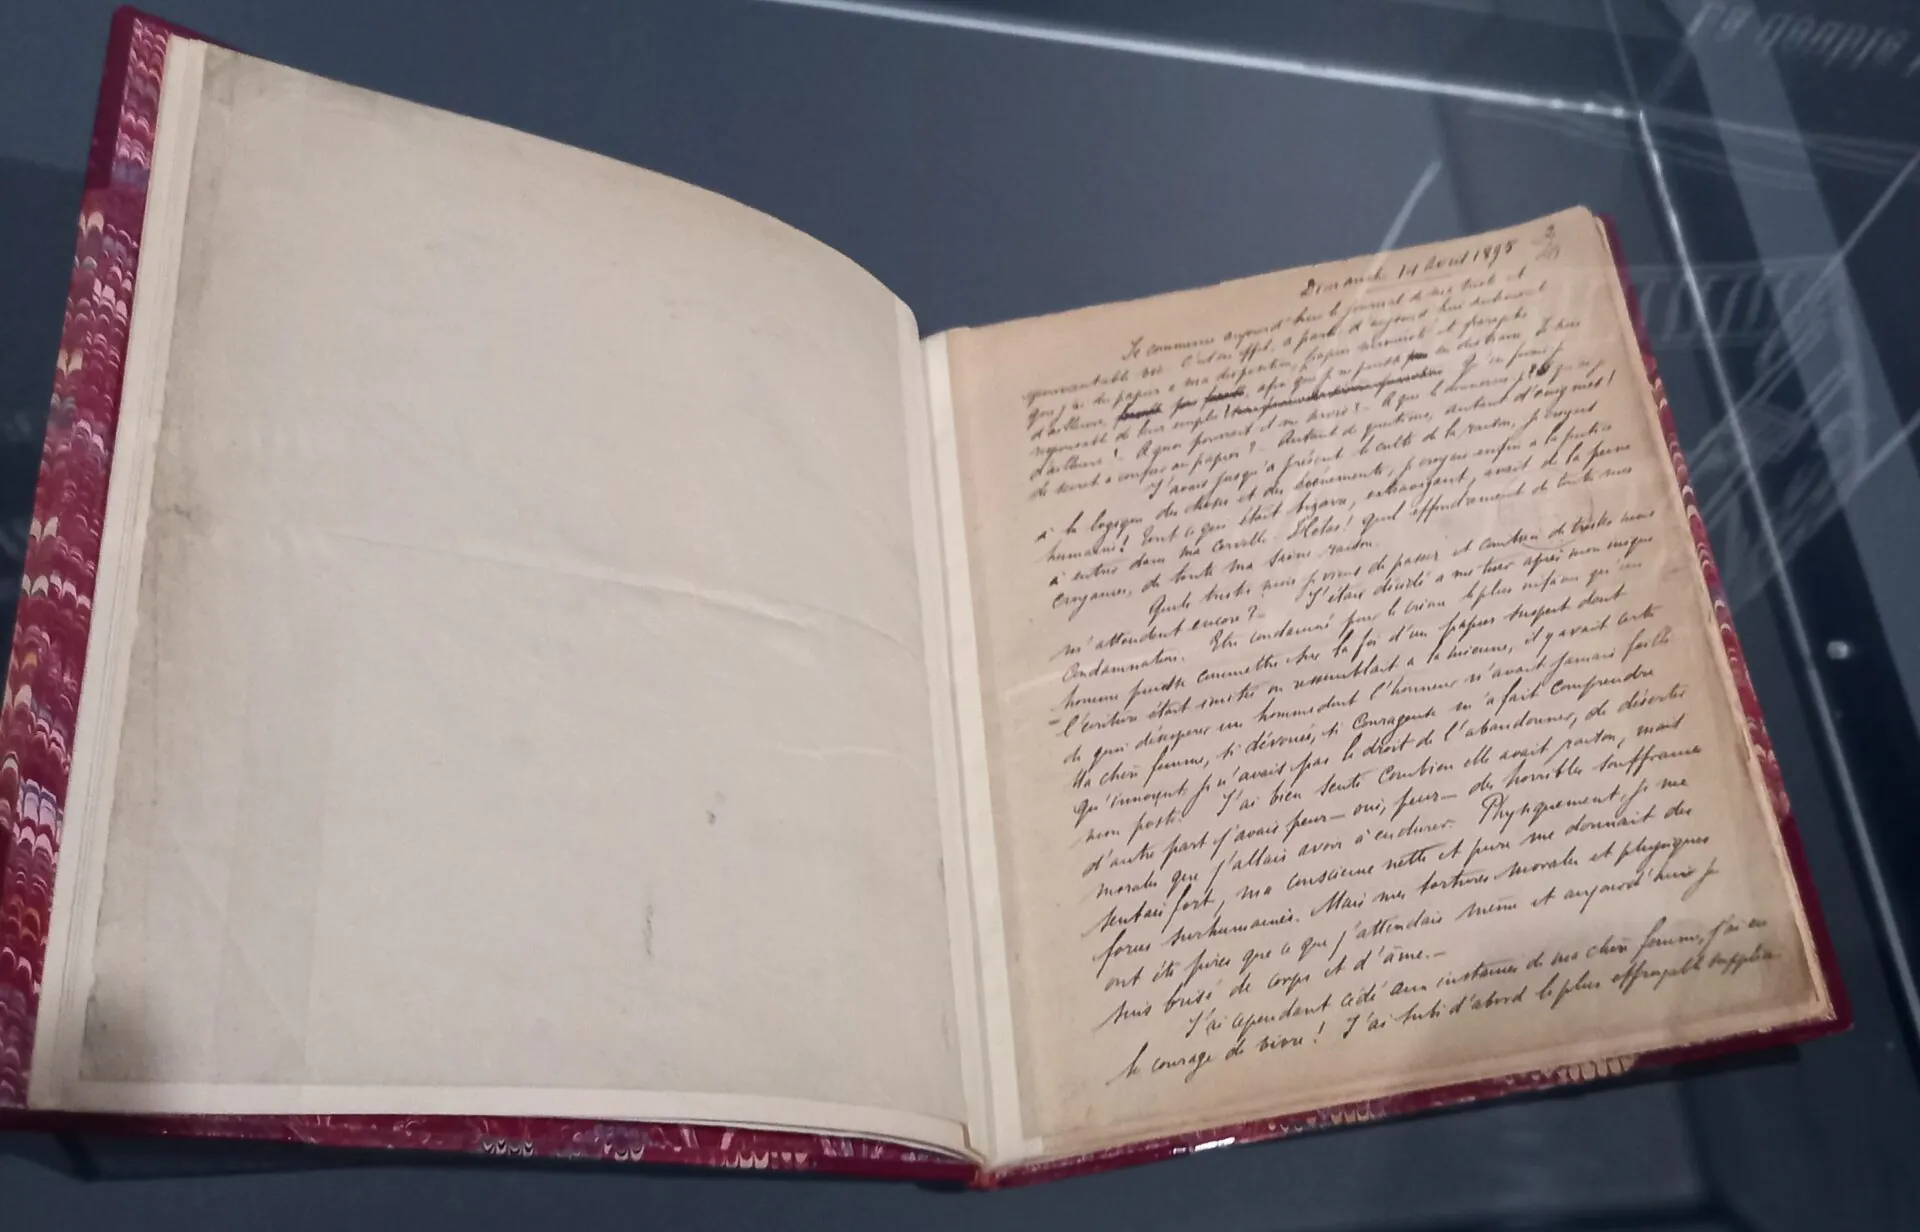 Dimanche 14 Avril 1895
Je commence aujourd'hui le journal de ma triste et
épouvantable vie. C'est en effet, à partir d'aujourd'hui seulement
que j'ai du papier à ma disposition, papier numéroté et paraphé
d'ailleurs, afin que je ne puisse en distraire. Je suis
responsable de leur emploi! Qu'en ferais-je
d'ailleurs! A quoi pourrait-il me servir? A qui le donnerai-je? Qu'ai-je
de secret à confier au papier? Autant de questions, autant d'énigmes!
J'avais jusqu'à présent le culte de la raison, je croyais
à la logique des choses et des événements, je croyais enfin à la justice
humaine! Tout ce qui était bizarre, extravagant, avait de la peine
à entrer dans ma cervelle. Hélas! Quel effondrement de toutes mes
croyances, de toute ma saine raison.
Quels tristes mois je viens de passer et combien de tristes mois
m'attendent encore?
J'étais décidé à me tuer après mon inique
condamnation. Etre condamné pour le crime le plus infâme qu'un
homme puisse commettre sur la foi d'un papier suspect dont
l'écriture était imitée ou ressemblait à la mienne, il y avait certes
de quoi désespérer un homme dont l'honneur n'avait jamais failli
Ma chère femme, si dévouée, si courageuse m'a fait comprendre
qu'innocent je n'avais pas le droit de l'abandonner, de déserter
mon poste. J'ai bien senti combien elle avait raison, mais
d'autre part j'avais peur — oui, peur — des horribles souffrances
morales que j'allais avoir à endurer. Physiquement, je me
sentais fort, ma conscience nette et pure me donnait des
forces surhumaines. Mais mes tortures morales et physiques
ont été pires que ce que j'attendais même et aujourd'hui je
suis brisé de corps et d'âme.—
J'ai cependant cédé aux instances de ma chère femme, j'ai eu
le courage de vivre! J'ai subi d'abord le plus effroyable supplice